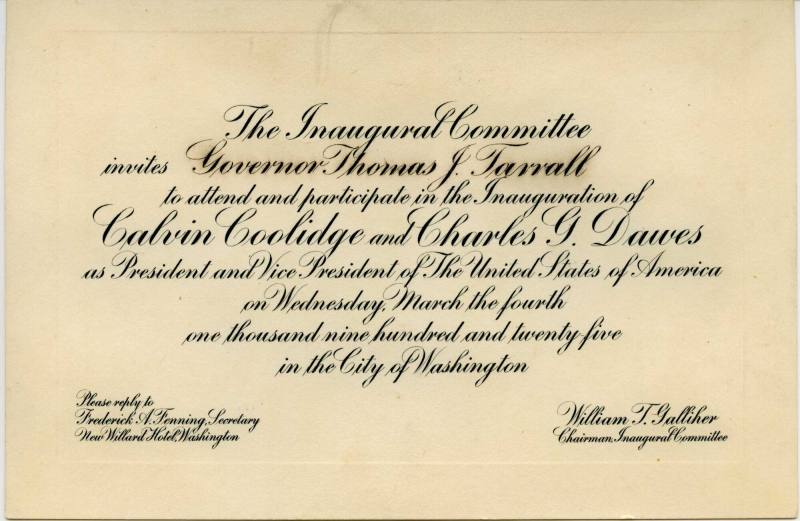 The Inaugural Committee
invites Governor Thomas J. Tarrall
to attend and participate in the Inauguration of
Calvin Coolidge and Charles G. Dawes
as President and Vice President of The United States of America
on Wednesday, March the fourth
one thousand nine hundred and twenty-five
in the City of Washington
Please reply to
Frederick A. Fenning, Secretary
New Willard Hotel, Washington
William T. Galliher
Chairman, Inaugural Committee